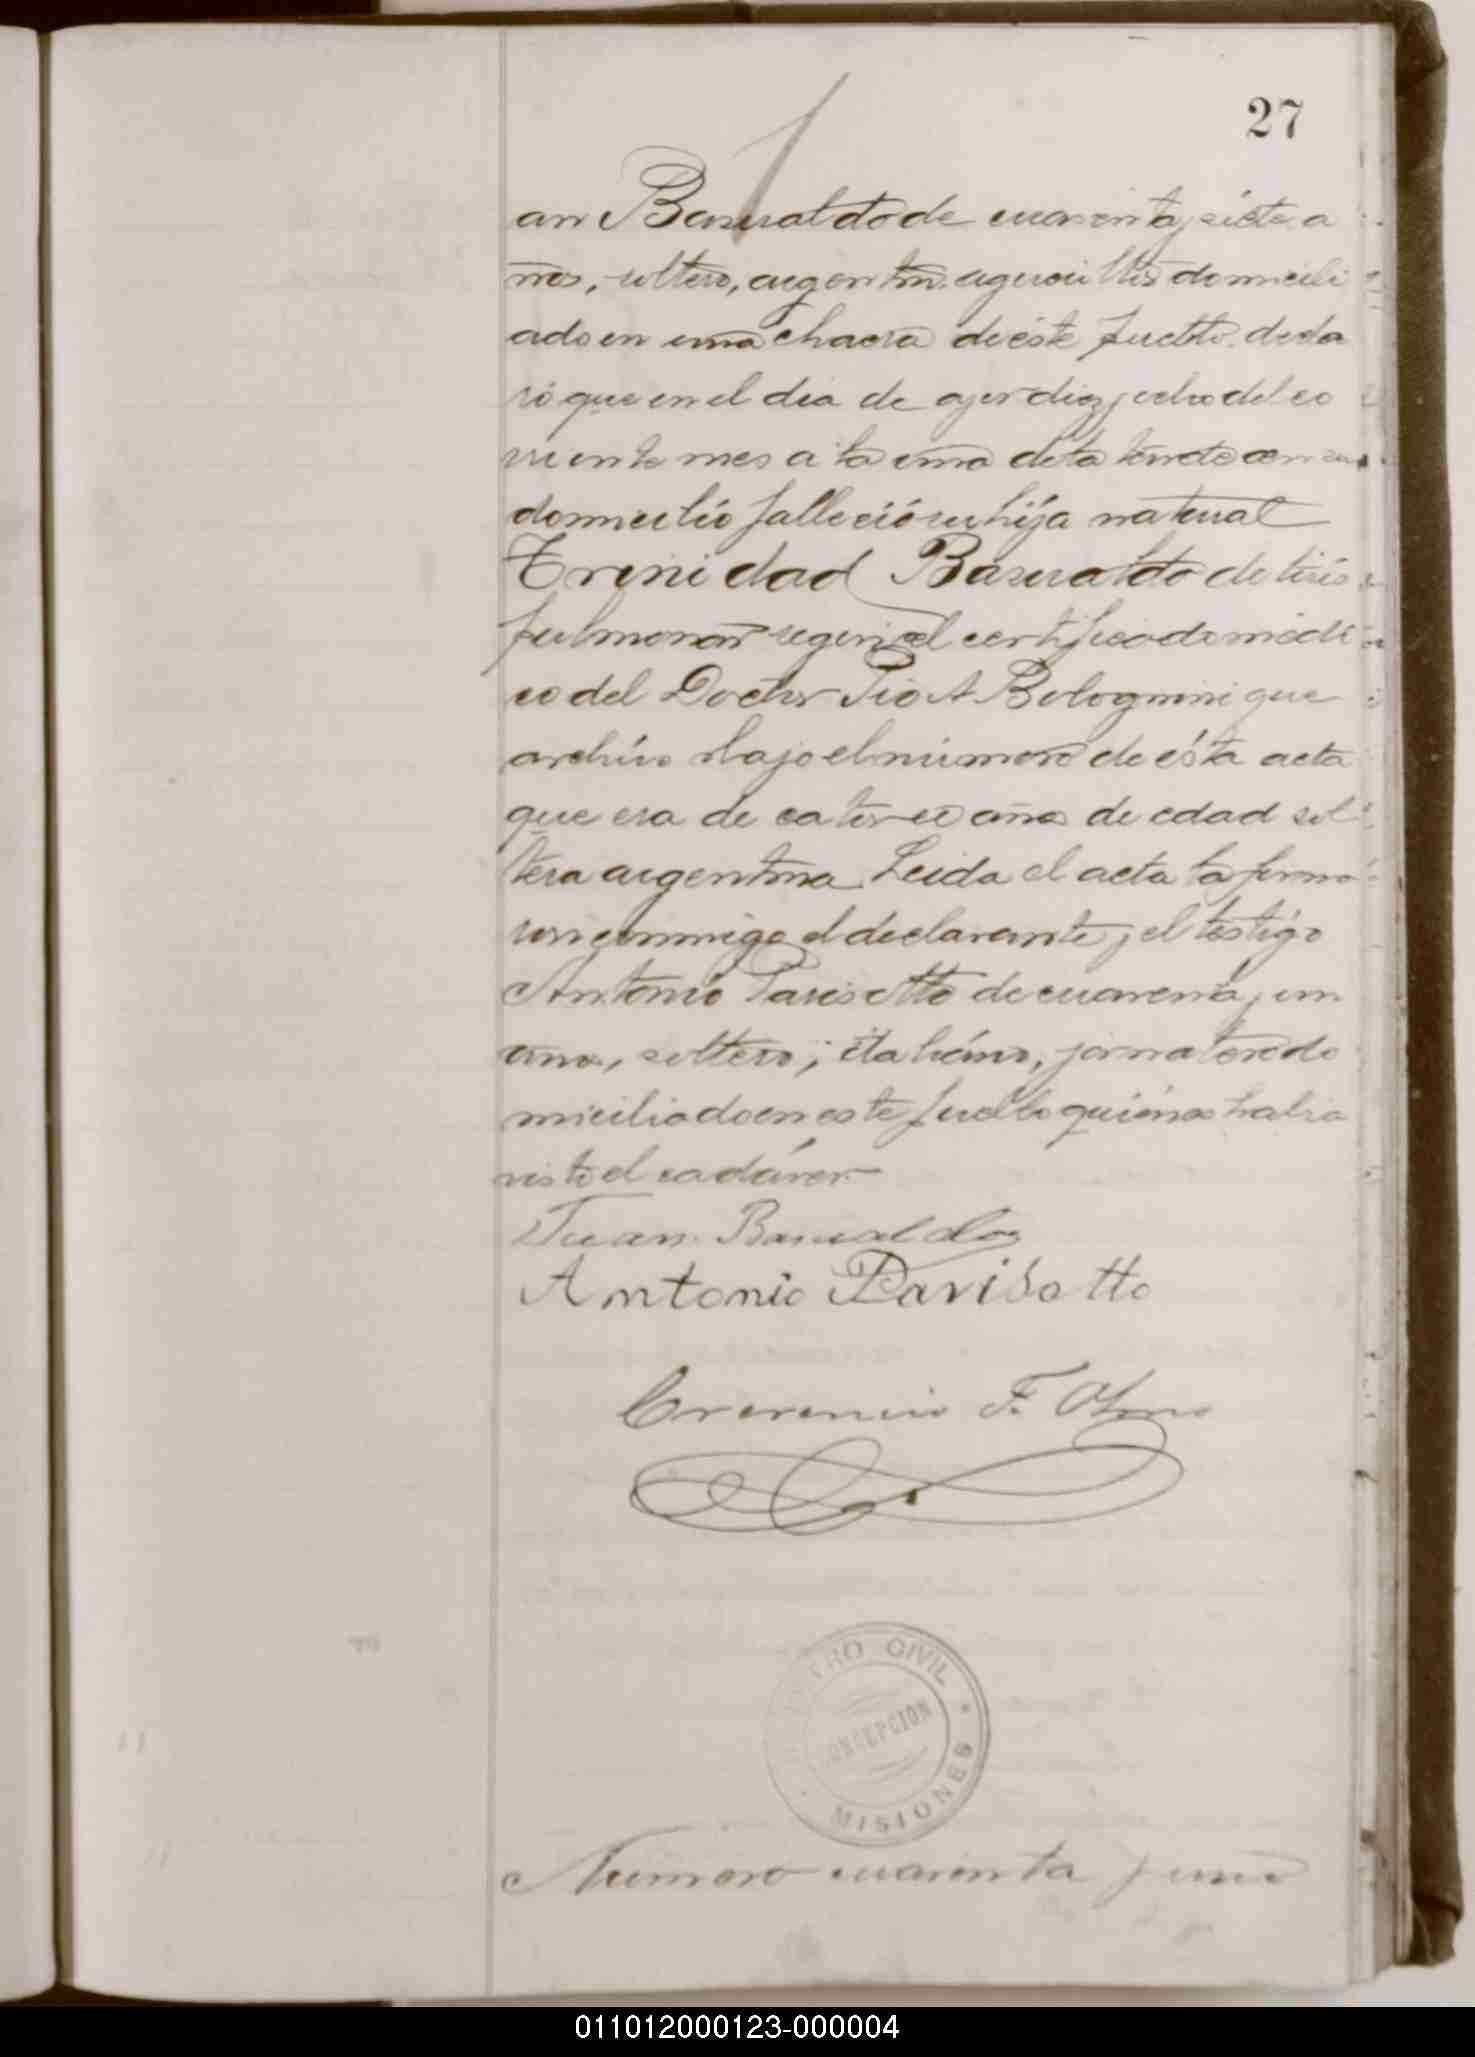 27
an Basualdo de cuarenta y siete a
ños, soltero, argentino, agricultor domicili
ado en una chacra de éste pueblo. decla
ró que en el dia de ayer diez y ocho del co
rriente mes a la una de la tarde en su
domicilio falleció su hija natural
Trinidad Basualdo de tisis
pulmonar segun el certificado medi
co del Doctor Pio A Bolognini que
archivo bajo el número de ésta acta
que era de catorce años de edad sol
tera argentina Leida el acta la firma
ron conmigo el declarante y el testigo
Antonio Parisotto de cuarenta y un
años, soltero, italiano, jornalero do
miciliado en este pueblo quiénes habia
visto el cadáver
Juan Basualdo
Antonio Parisotto
F. Olmo
REGISTRO CIVIL
CONCEPCION
MISIONES
Número cuarenta y uno
011012000123-000004